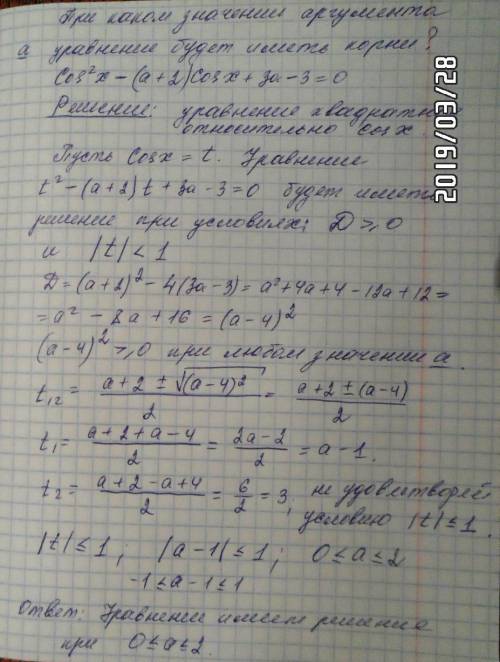 При каком значении аргумента
a уравнение будет иметь корни?
Cos²x − (a+2)Cosx + 3a − 3 = 0
Решение: уравнение квадратн
относительно cos x
Пусть Cosx = t. Уравнение
t² − (a+2)t + 3a − 3 = 0 будет иметь
решение при условиях: D ≥ 0
и |t| < 1
D = (a+2)² − 4(3a−3) = a² + 4a + 4 − 12a + 12 =
= a² − 8a + 16 = (a−4)²
(a−4)² ≥ 0 при любом значении a.
t₁,₂ = (a+2 ± √(a−4)²)/2 = (a+2 ± (a−4))/2
t₁ = (a+2+a−4)/2 = (2a−2)/2 = a−1.
t₂ = (a+2−a+4)/2 = 6/2 = 3, не удовлетворяй
условию |t| ≤ 1.
|t| ≤ 1; |a−1| ≤ 1; 0 ≤ a ≤ 2
−1 ≤ a−1 ≤ 1
Ответ: Уравнение имеет решение
при 0 ≤ a ≤ 2.
2019/03/28